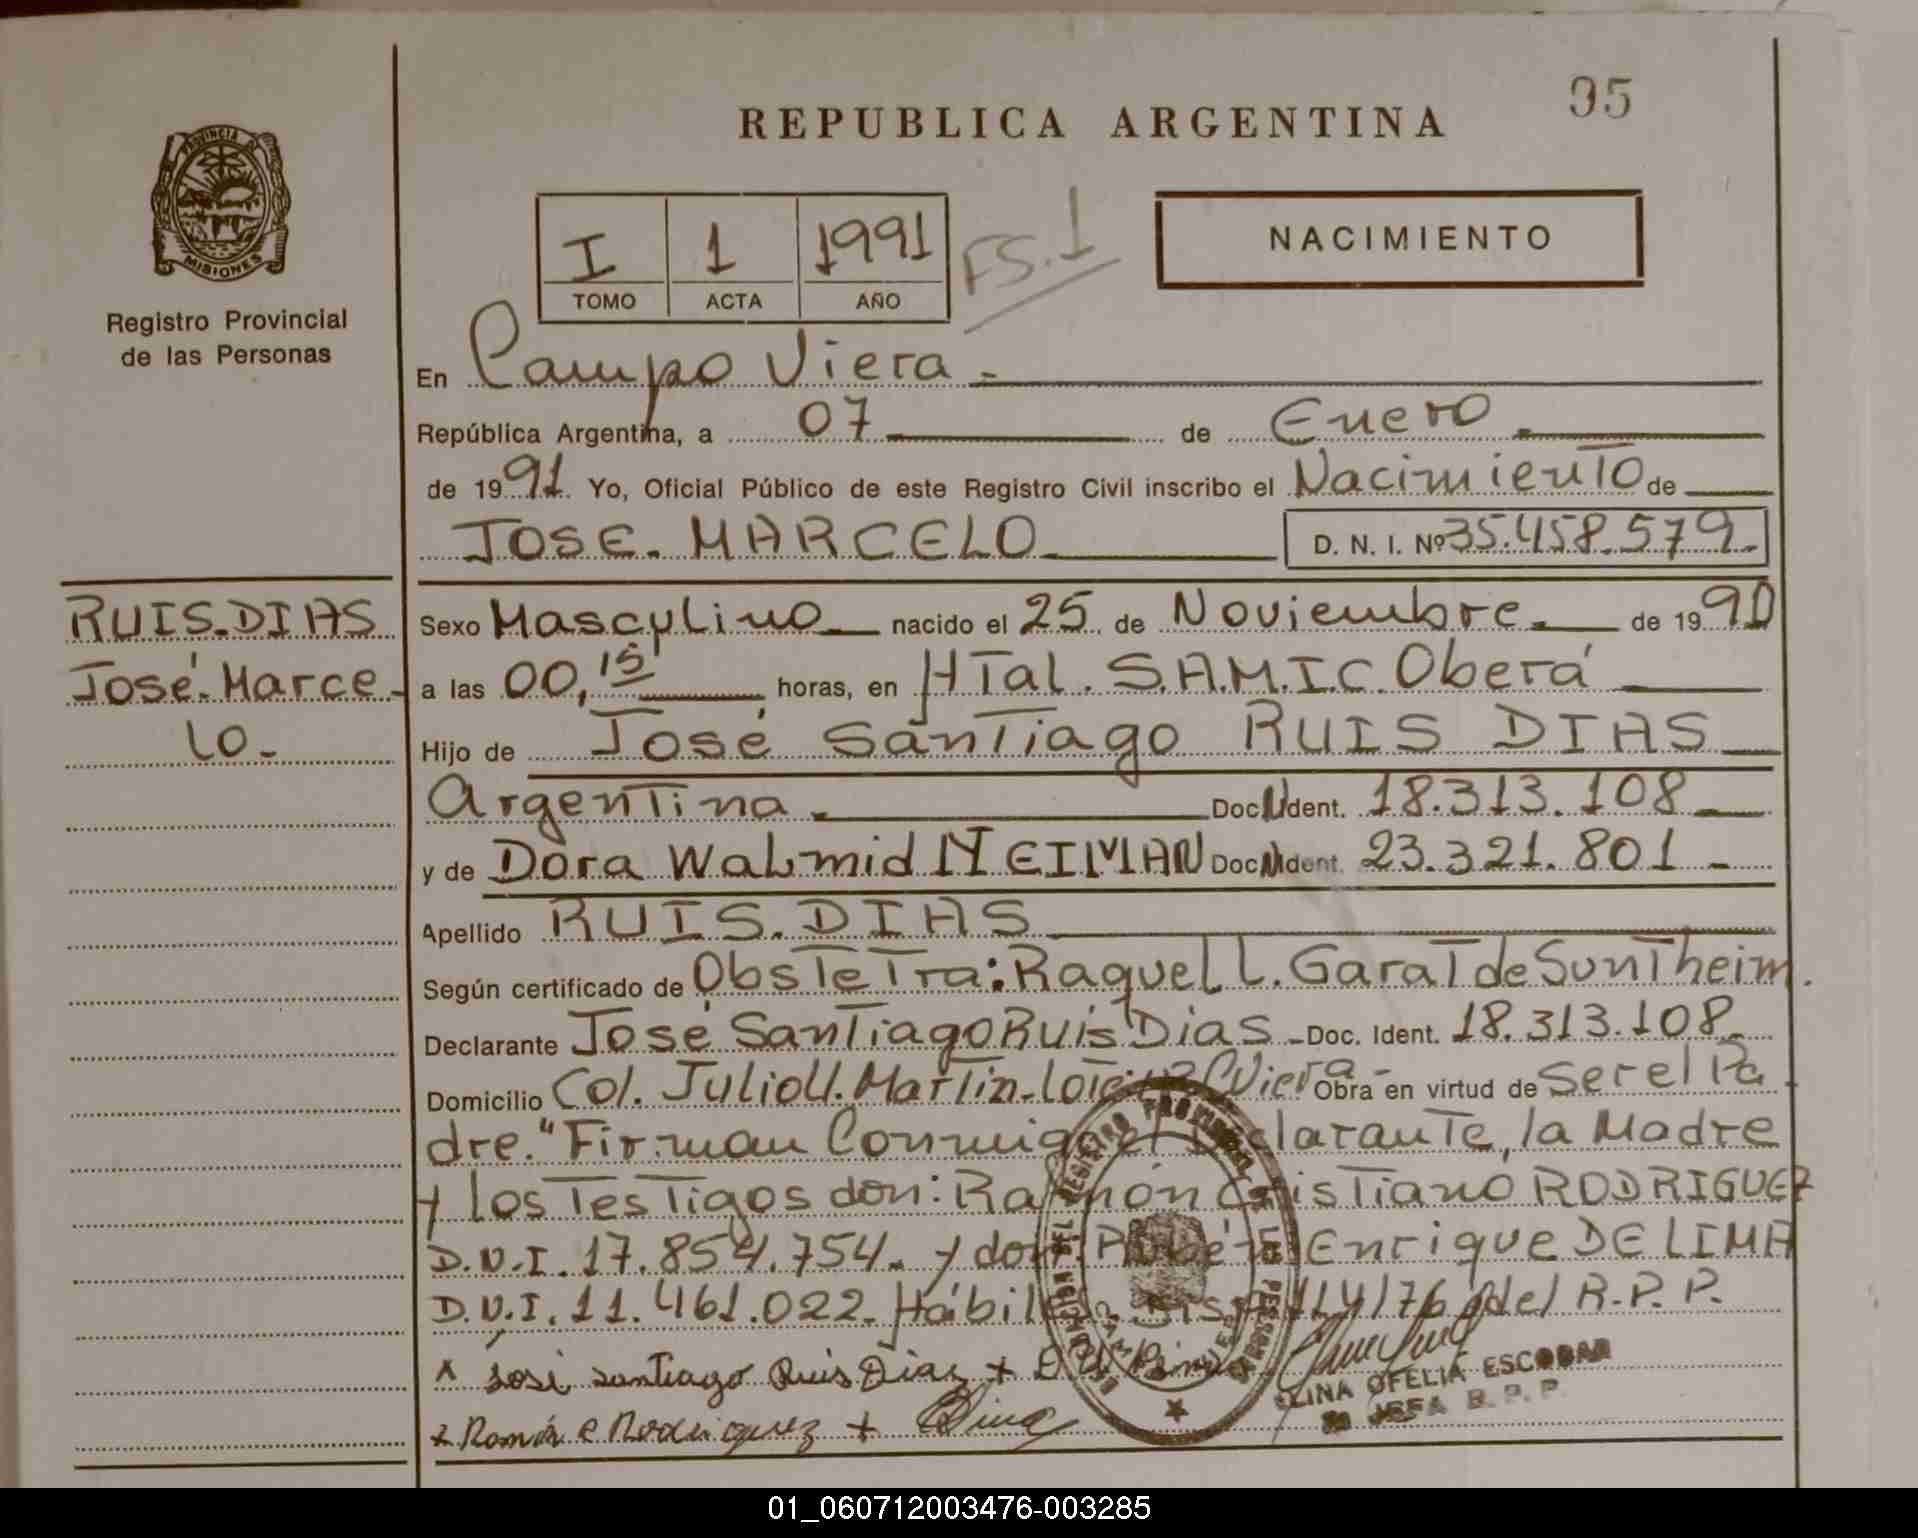 95
REPUBLICA ARGENTINA
PROVINCIA DE
MISIONES
Registro Provincial
de las Personas
I 1 1991 FS.1
TOMO ACTA AÑO
NACIMIENTO
En Campo Viera -
República Argentina, a 07 de Enero
de 1991 Yo, Oficial Público de este Registro Civil inscribo el Nacimiento de
JOSE. MARCELO D. N. I. Nº 35.458.579.
RUIS.DIAS
José.Marce-
lo-
Sexo Masculino nacido el 25 de Noviembre. de 1990
a las 00,15' horas, en HTal. S.A.M.I.C. Oberá
Hijo de José Santiago RUIS DIAS
Argentina. Doc. Ident. 18.313.108
y de Dora Walmid NEIMAN Doc. Ident. 23.321.801 -
Apellido RUIS.DIAS
Según certificado de Obstetra: Raquel L. Garat de Suntheim.
Declarante José Santiago Ruis Dias - Doc. Ident. 18.313.108-
Domicilio Col. Julio U. Martin- C Viera- Obra en virtud de Ser el Pa
dre." Firman Conmigo el Declarante, la Madre
y los Testigos don: Ramón Cristiano RODRIGUEZ
D.N.I. 17.854.754. y don: Rubén Enrique DE LIMA
D.N.I. 11.461.022. Hábiles 14/76 del R.P.P.
x José Santiago Ruis Diaz +
x Ramón C Rodriguez +
REGISTRO PROVINCIAL DE LAS PERSONAS
ELINA OFELIA ESCOBAR
JEFA R. P. P.
01_060712003476-003285